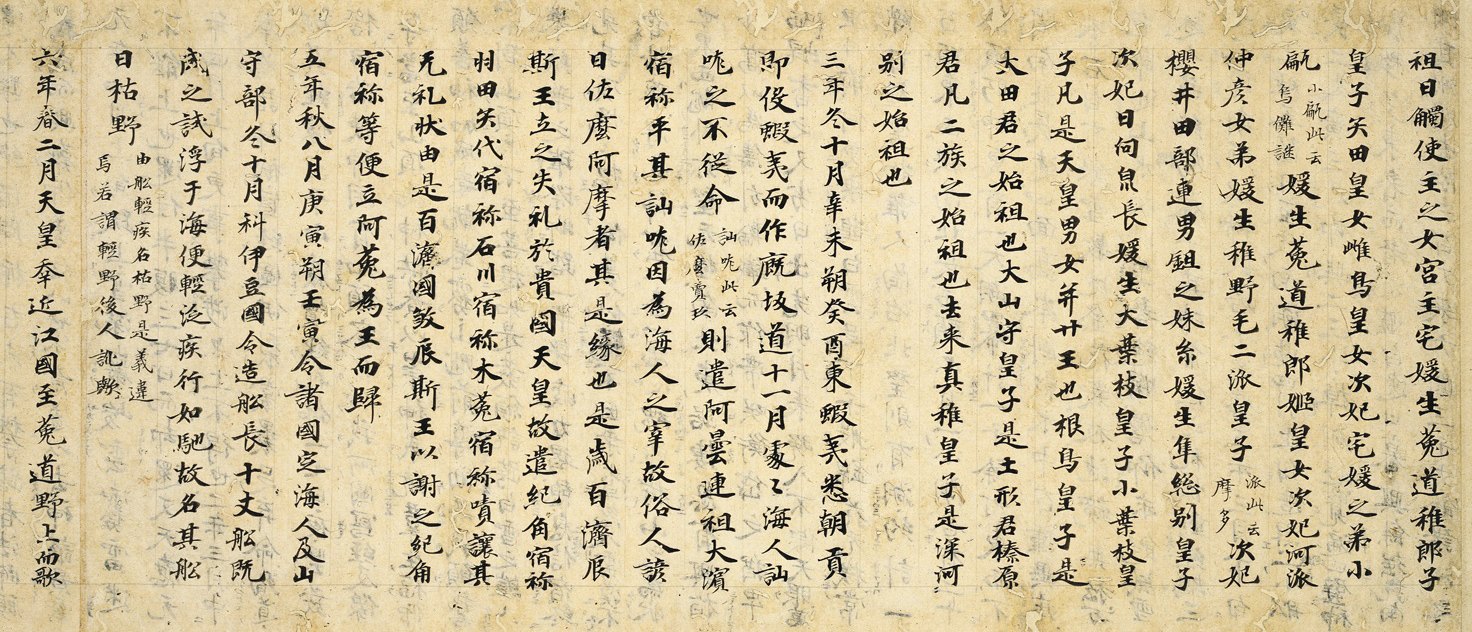 祖日觸使主之女宮主宅媛生菟道稚郎子
皇子矢田皇女雌鳥皇女次妃宅媛之弟小
甂小甂此云烏儺謎媛生菟道稚郎姬皇女次妃河派
仲彦女弟媛生稚野毛二派皇子派此云摩多次妃
櫻井田部連男鉏之妹糸媛生隼総别皇子
次妃日向泉長媛生大葉枝皇子小葉枝皇
子凡是天皇男女并廿王也根鳥皇子是
大田君之始祖也大山守皇子是土形君榛原
君凡二族之始祖也去来真稚皇子是深河
别之始祖也
三年冬十月辛未朔癸酉東蝦夷悉朝貢
即役蝦夷而作廐坂道十一月處々海人訕
哤之不從命訕哤此云佐麼賣玖則遣阿曇連祖大濱
宿祢平其訕哤因為海人之宰故俗人諺
曰佐麼阿摩者其是緣也是歳百濟辰
斯王立之失礼於貴國天皇故遣紀角宿祢
羽田矢代宿祢石川宿祢木菟宿祢嘖讓其
无礼状由是百濟國敘辰斯王以謝之紀角
宿祢等便立阿菟為王而歸
五年秋八月庚寅朔壬寅令諸國定海人及山
守部冬十月科伊豆國令造船長十丈船既
成之試浮于海便輕泛疾行如馳故名其船
曰枯野由船輕疾名枯野是義違焉若謂輕野後人訛歟
六年春二月天皇幸近江國至菟道野上而歌